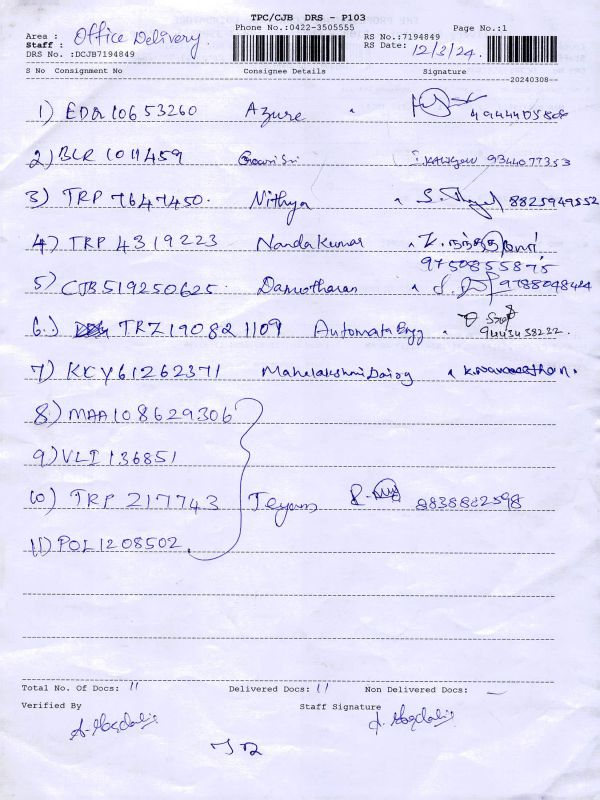 TPC/CJB DRS - P103
Phone No.:0422-3505555 Page No.:1
Area : Office Delivery.
Staff :
RS No.:7194849
RS Date: 12/3/24.
DRS No. :DCJB7194849
S No Consignment No Consignee Details Signature
20240308--
1) EDR 10653260 Azure
2) BLR 1011459 Gowri Sri 9344077353
3) TRP 7647450. Nithya 8825949552
4) TRP 4319223 Nandakumar
9750855875
5) CJB519250625. Damotharan 9788048424
6.) TRZ 190821109 Automata Engg 9443438232.
7) KCY61262371 Mahalakshmi Dairy
8) MAA108629306
9) VLI 136851
10) TRP 217743 Teyam 8838882598
11) POL1208502.
Total No. Of Docs: 11 Delivered Docs: 11 Non Delivered Docs: —
Verified By Staff Signature